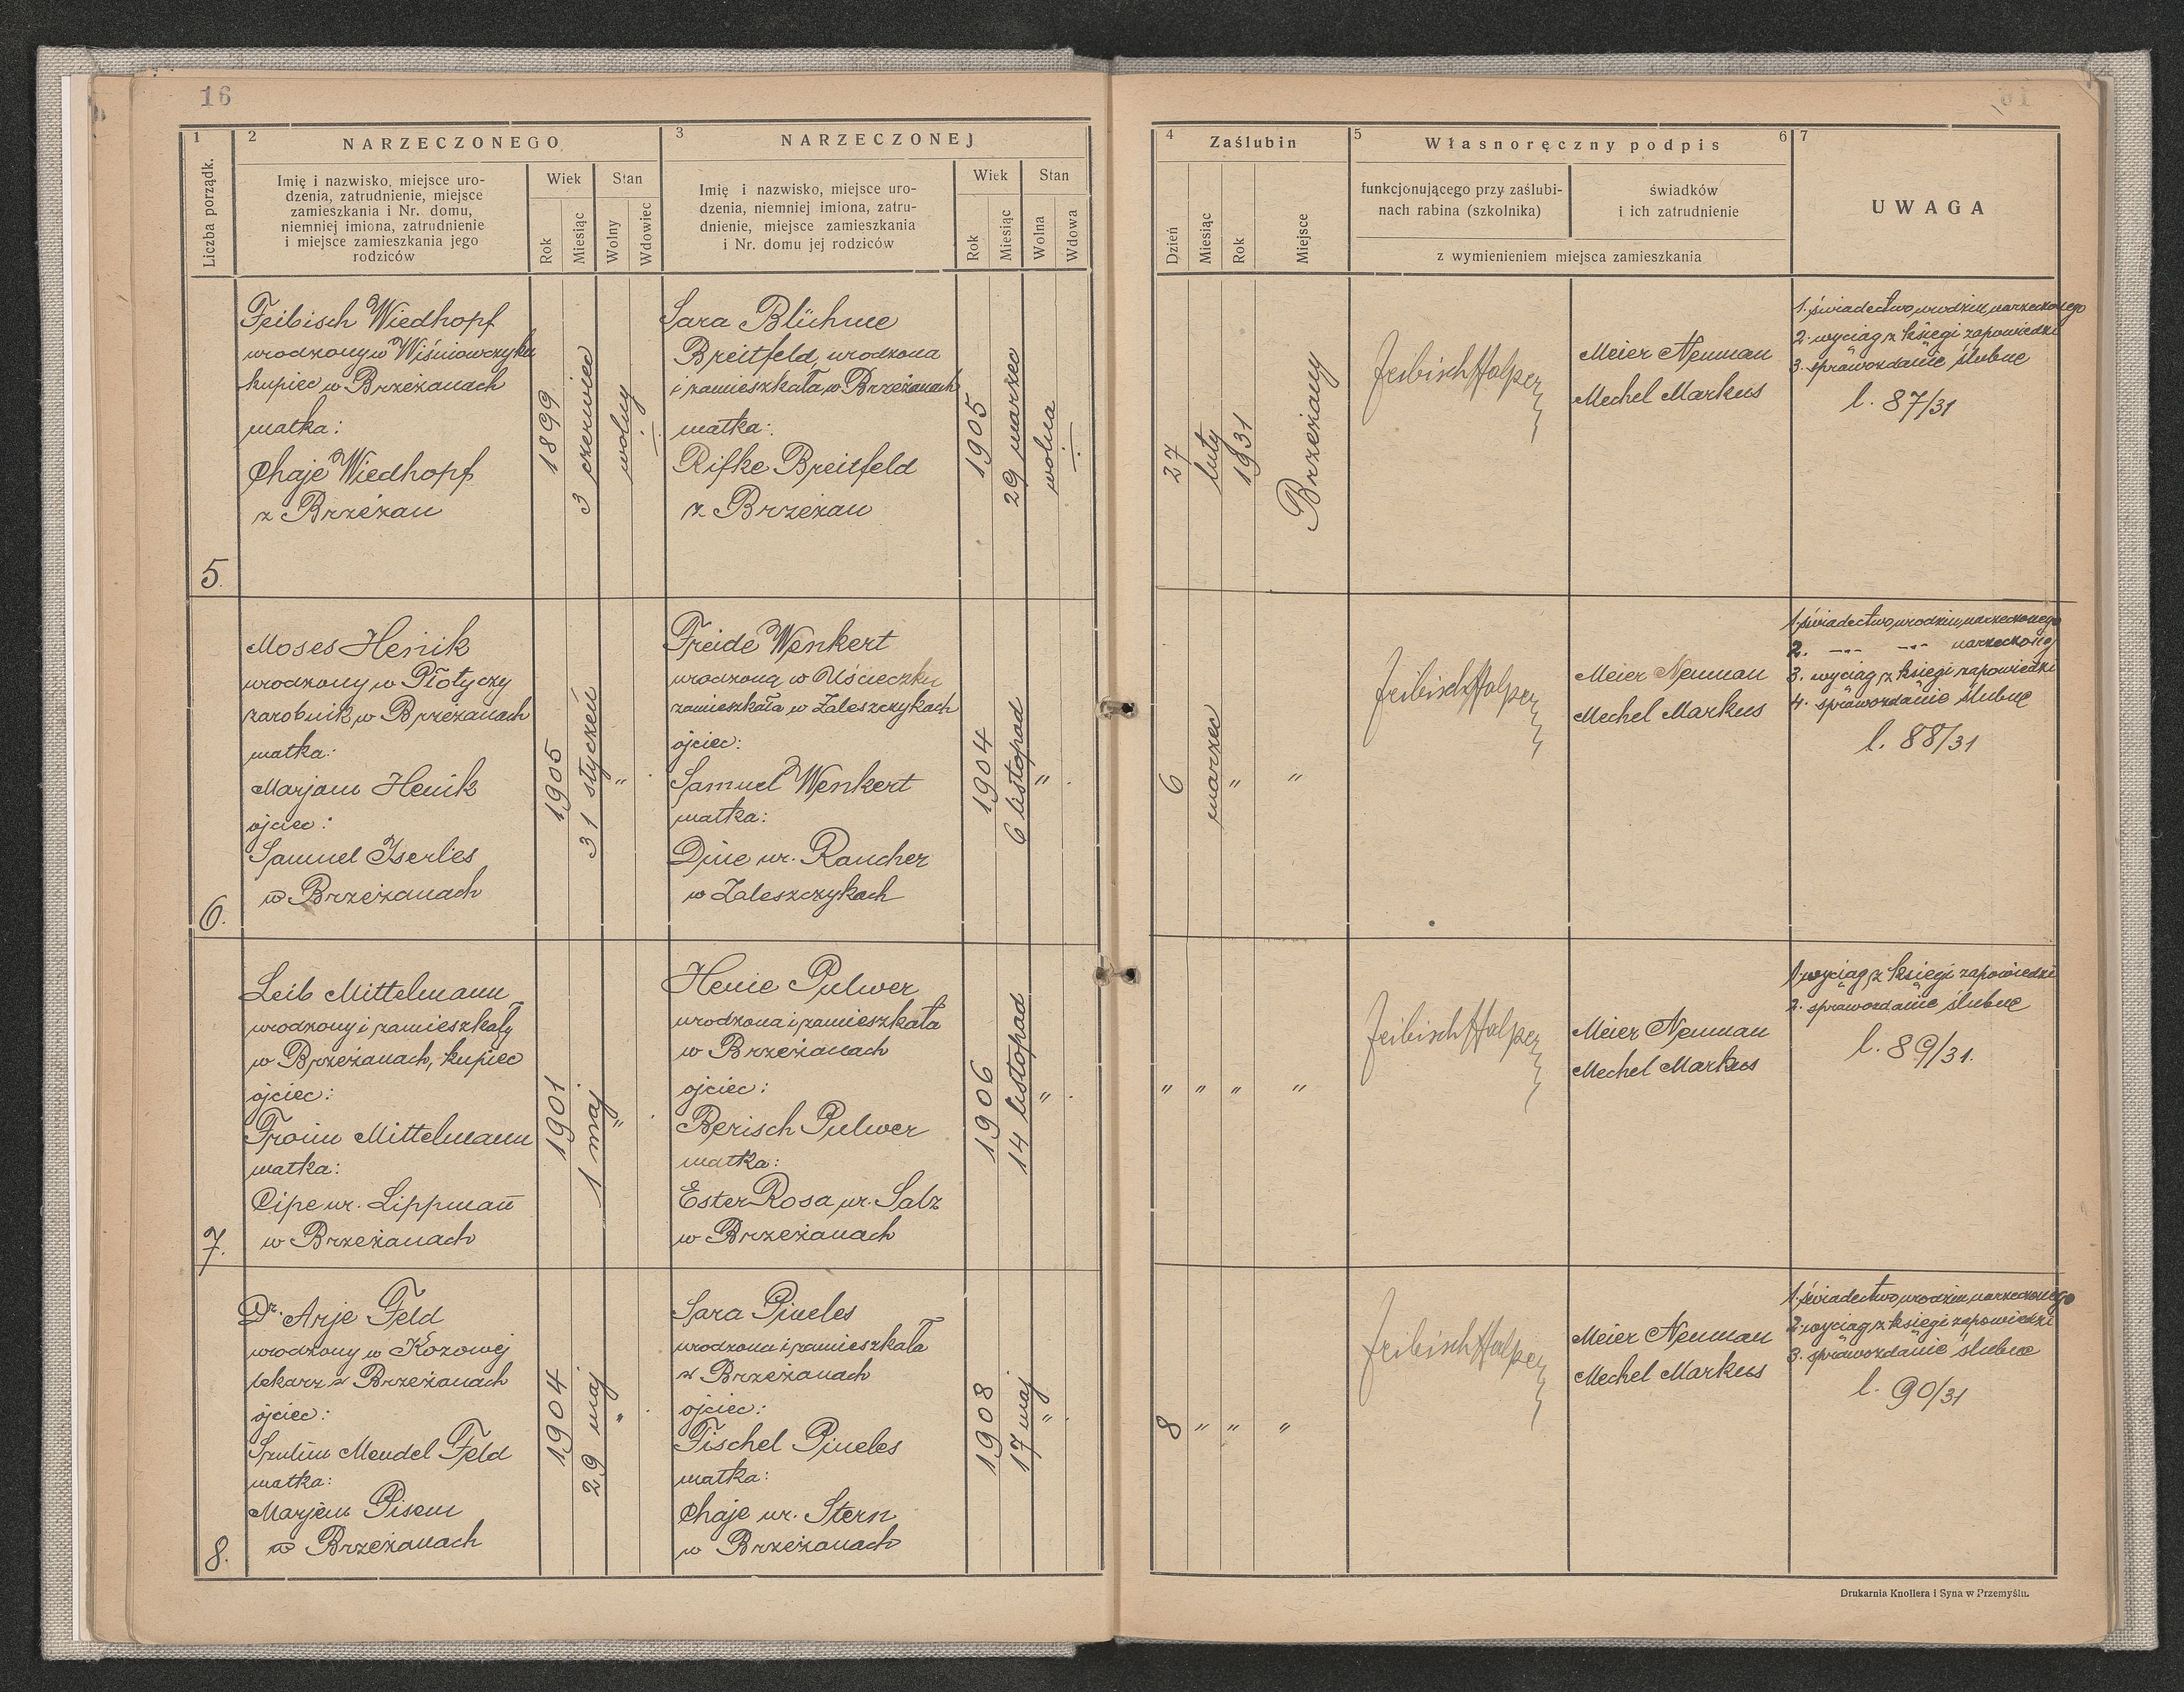 16
1
Liczba porządk.
2
NARZECZONEGO
Imię i nazwisko, miejsce uro-
dzenia, zatrudnienie, miejsce
zamieszkania i Nr. domu,
niemniej imiona, zatrudnienie
i miejsce zamieszkania jego
rodziców
Wiek
Stan
Rok
Miesiąc
Wolny
Wdowiec
3
NARZECZONEJ
Imię i nazwisko, miejsce uro-
dzenia, niemniej imiona, zatru-
dnienie, miejsce zamieszkania
i Nr. domu jej rodziców
Wiek
Stan
Rok
Miesiąc
Wolna
Wdowa
4
Zaślubin
Dzień
Miesiąc
Rok
Miejsce
5
Własnoręczny podpis
6
funkcjonującego przy zaślubi-
nach rabina (szkolnika)
świadków
i ich zatrudnienie
z wymienieniem miejsca zamieszkania
7
UWAGA
5.
Feibisch Wiedhopf
urodzony w Wiśniowczyku
kupiec w Brzeżanach
matka:
Chaje Wiedhopf
z Brzeżan
1899
3 czerwiec
wolny
Sara Blühme
Breitfeld, urodzona
i zamieszkała w Brzeżanach
matka:
Rifke Breitfeld
z Brzeżan
1905
29 marzec
wolna
27
luty
1931
Brzeżany
Feibisch Halpern
Meier Neuman
Mechel Markus
1. świadectwo urodzin narzeczonego
2. wyciąg z księgi zapowiedzi
3. sprawozdanie ślubne
l. 87/31
6.
Moses Henik
urodzony w Płotyczy
zarobnik w Brzeżanach
matka:
Marjam Henik
ojciec:
Samuel Iserlies
w Brzeżanach
1905
31 styczeń
"
Freide Wenkert
urodzona w Uścieczku
zamieszkała w Zaleszczykach
ojciec:
Samuel Wenkert
matka:
Dine ur. Raucher
w Zaleszczykach
1904
6 listopad
"
6
marzec
"
"
Feibisch Halpern
Meier Neuman
Mechel Markus
1. świadectwo urodzin narzeczonego
2. --- --- narzeczonej
3. wyciąg z księgi zapowiedzi
4. sprawozdanie ślubne
l. 88/31
7.
Leib Mittelmann
urodzony i zamieszkały
w Brzeżanach, kupiec
ojciec:
Froim Mittelmann
matka:
Cipe ur. Lippmañ
w Brzeżanach
1901
1 maj
"
Henie Pulwer
urodzona i zamieszkała
w Brzeżanach
ojciec:
Berisch Pulwer
matka:
Ester Rosa ur. Salz
w Brzeżanach
1906
14 listopad
"
"
"
"
"
Feibisch Halpern
Meier Neuman
Mechel Markus
1. wyciąg z księgi zapowiedzi
2. sprawozdanie ślubne
l. 89/31.
8.
Dr. Arje Feld
urodzony w Kozowej
lekarz w Brzeżanach
ojciec:
Szulim Mendel Feld
matka:
Marjem Pisem
w Brzeżanach
1904
29 maj
"
Sara Pineles
urodzona i zamieszkała
w Brzeżanach
ojciec:
Fischel Pineles
matka:
Chaje ur. Stern
w Brzeżanach
1908
17 maj
"
8
"
"
"
Feibisch Halpern
Meier Neuman
Mechel Markus
1. świadectwo urodzin narzeczonego
2. wyciąg z księgi zapowiedzi
3. sprawozdanie ślubne
l. 90/31
Drukarnia Knollera i Syna w Przemyślu.